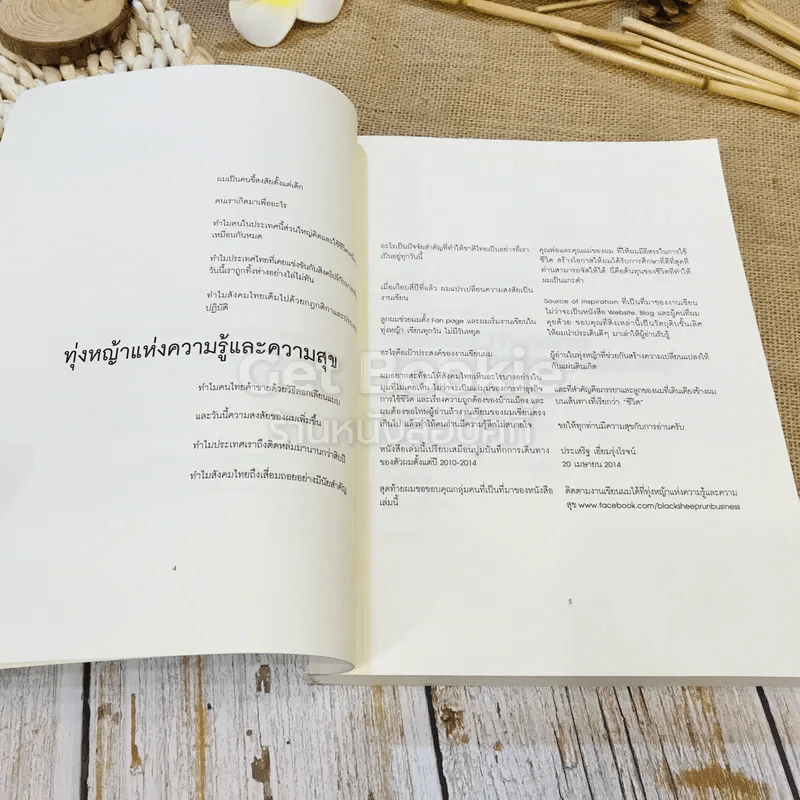 ผมเป็นคนขี้สงสัยตั้งแต่เด็ก
คนเราเกิดมาเพื่ออะไร
ทำไมคนในประเทศนี้ส่วนใหญ่คิดและใช้ชีวิต
เหมือนกันหมด
ทำไมประเทศไทยที่เคยแข่งขันกับสิงคโปร์
วันนี้เราถูกทิ้งห่างอย่างไล่ไม่ทัน
ทำไมสังคมไทยเต็มไปด้วยกฎกติกาและ
ปฏิบัติ
ทุ่งหญ้าแห่งความรู้และความสุข
ทำไมคนไทยค้าขายด้วยวิธีลอกเลียนแบบ
และวันนี้ความสงสัยของผมเพิ่มขึ้น
ทำไมประเทศเราถึงติดหล่มมานานกว่าสิบปี
ทำไมสังคมไทยถึงเสื่อมถอยอย่างมีนัยสำคัญ
4
อะไรเป็นปัจจัยสำคัญที่ทำให้ชาติไทยเป็นอย่างที่เรา
เป็นอยู่ทุกวันนี้
เมื่อเกือบสี่ปีที่แล้ว ผมแปรเปลี่ยนความสงสัยเป็น
งานเขียน
ลูกผมช่วยผมตั้ง Fan page และผมเริ่มงานเขียนใน
ทุ่งหญ้า เขียนทุกวัน ไม่มีวันหยุด
อะไรคือเป้าประสงค์ของงานเขียนผม
ผมอยากสะท้อนให้สังคมไทยเห็นอะไรบางอย่างใน
มุมที่ไม่เคยเห็น ไม่ว่าจะเป็นแง่มุมของการทำธุรกิจ
การใช้ชีวิต และเรื่องความถูกต้องของบ้านเมือง และ
ผมต้องขอโทษผู้อ่านถ้างานเขียนของผมเขียนตรง
เกินไป แล้วทำให้คนอ่านมีความรู้สึกไม่สบายใจ
หนังสือเล่มนี้เปรียบเสมือนปูมบันทึกการเดินทาง
ของตัวผมตั้งแต่ปี 2010-2014
สุดท้ายผมขอขอบคุณกลุ่มคนที่เป็นที่มาของหนังสือ
เล่มนี้
คุณพ่อและคุณแม่ของผม ที่ให้ผมมีอิสรในการใช้
ชีวิต สร้างโอกาสให้ผมได้รับการศึกษาที่ดีที่สุดที่
ท่านสามารถจัดให้ได้ นี่คือต้นทุนของชีวิตที่ทำให้
ผมเป็นแกะดำ
Source of inspiration ที่เป็นที่มาของงานเขียน
ไม่ว่าจะเป็นหนังสือ Website, Blog และผู้คนที่ผม
คุยด้วย ขอบคุณที่สิ่งเหล่านี้เป็นวัตถุดิบชั้นเลิศ
ให้ผมนำประเด็นดีๆ มาเล่าให้ผู้อ่านรับรู้
ผู้อ่านในทุ่งหญ้าที่ช่วยกันสร้างความเปลี่ยนแปลงให้
กับแผ่นดินเกิด
และที่สำคัญคือภรรยาและลูกของผมที่เดินเคียงข้างผม
บนเส้นทางที่เรียกว่า "ชีวิต"
ขอให้ทุกท่านมีความสุขกับการอ่านครับ
ประเสริฐ เอี่ยมรุ่งโรจน์
20 เมษายน 2014
ติดตามงานเขียนผมได้ที่ทุ่งหญ้าแห่งความรู้และความ
สุข www.facebook.com/blacksheeprunbusiness
5
Get Bookie
ร้านหนังสือบุ๊คกี้